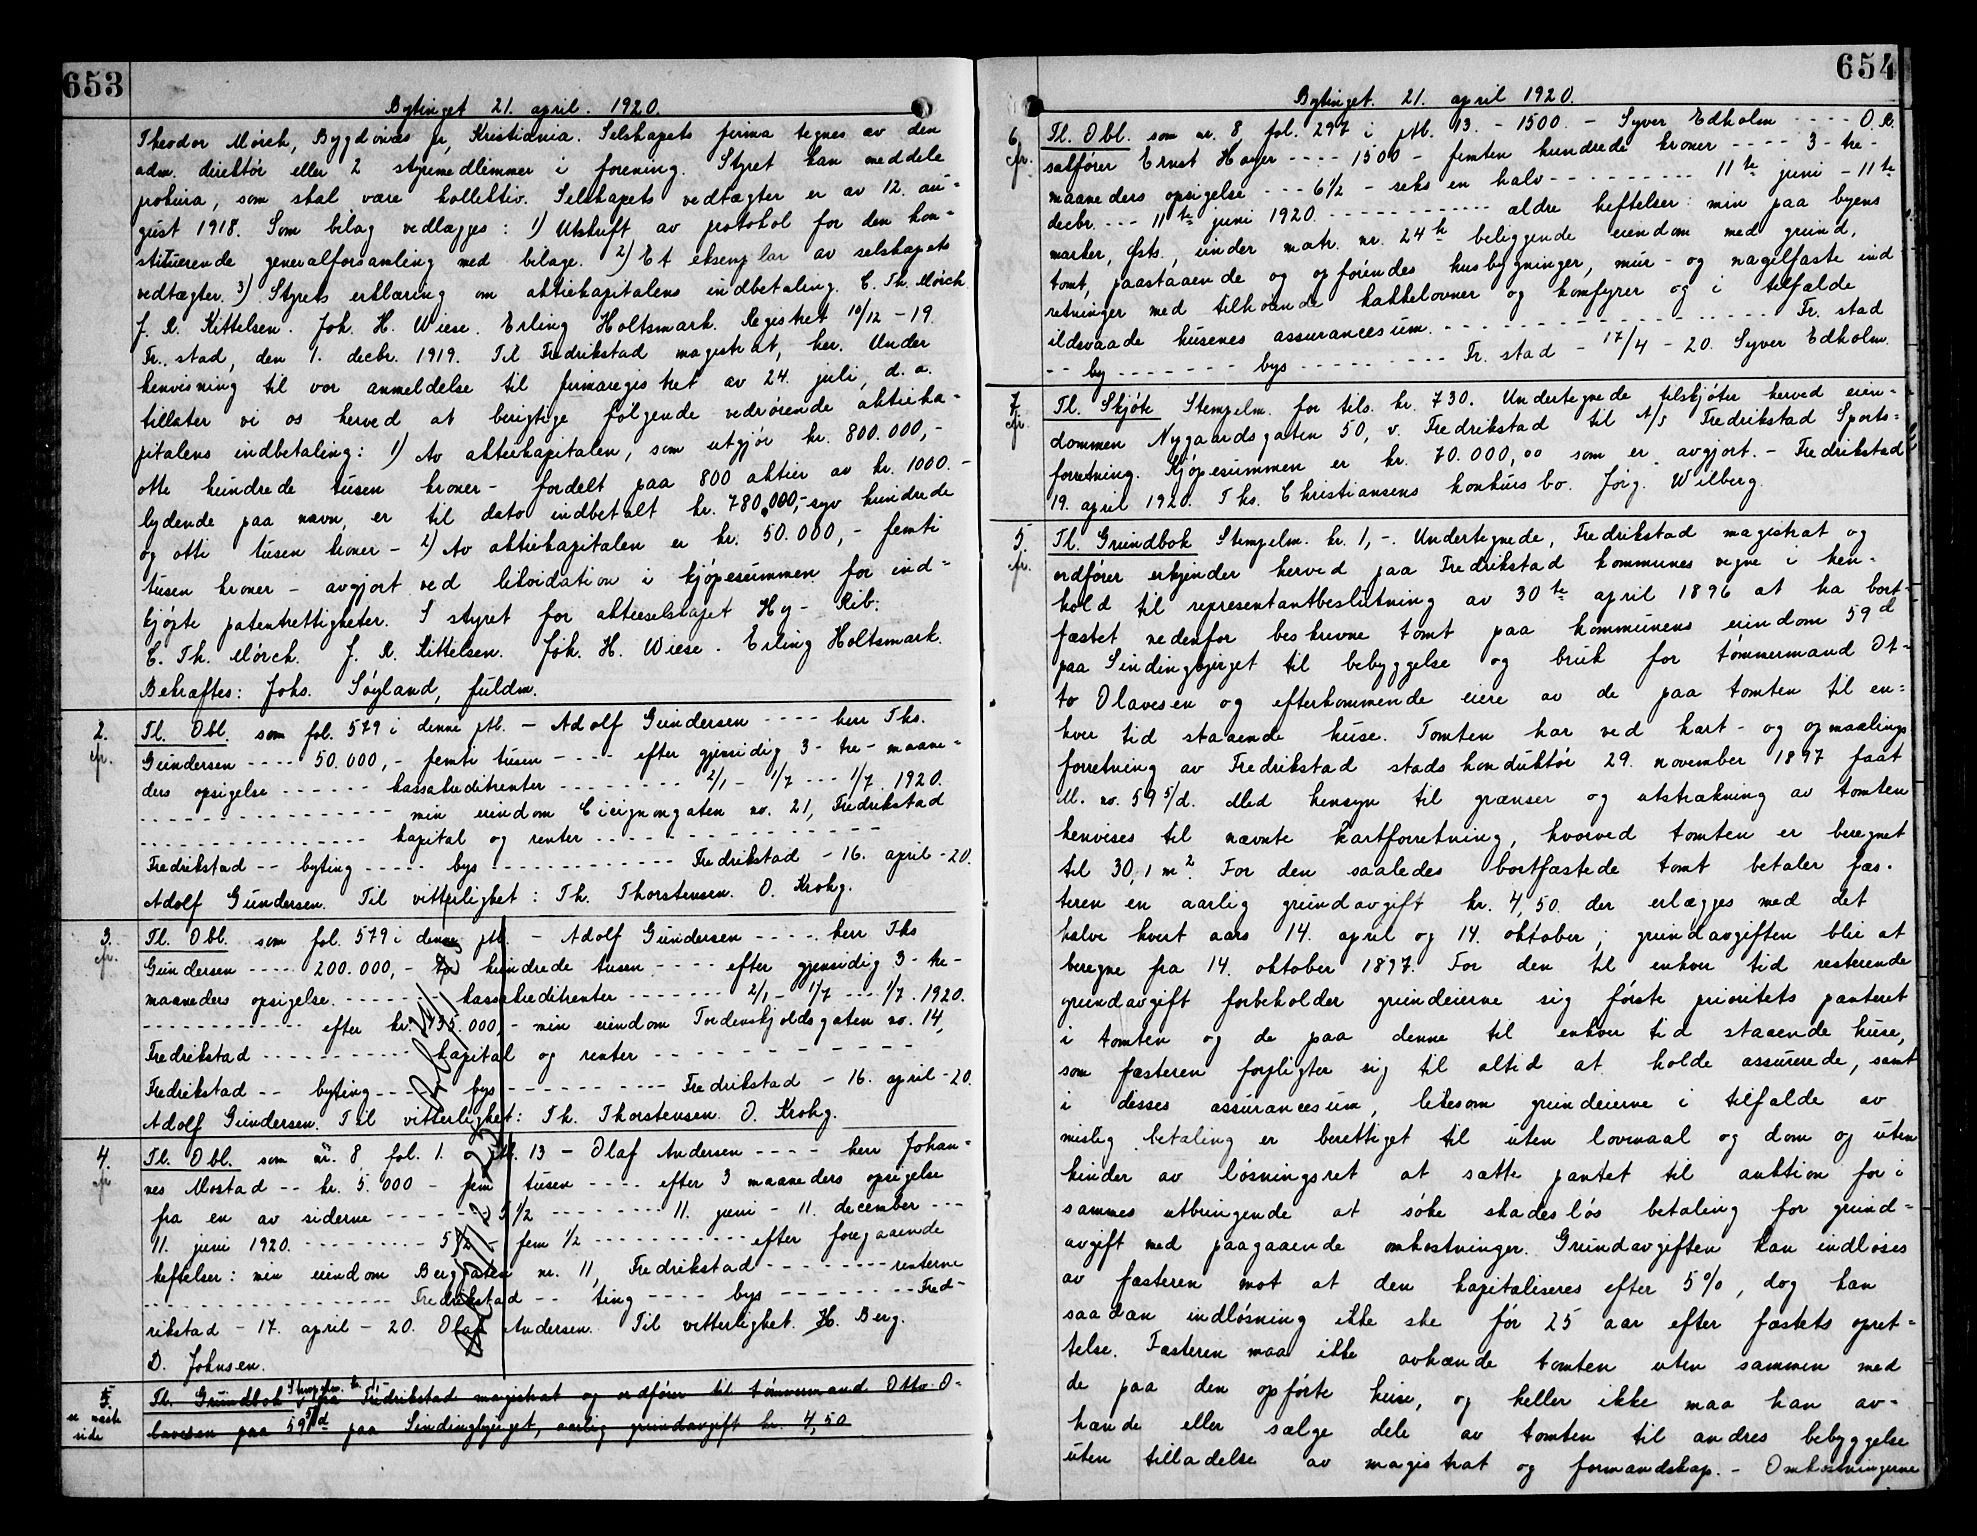 653
Bytinget 21. april. 1920.
Theodor Mørch, Bygdønæs pr, Kristiania. Selskapets firma tegnes av den
adm. direktør eller 2 styremedlemmer i forening. Styret kan meddele
prokura, som skal være kollektiv. Selskapets vedtægter er av 12. au-
gust 1918. Som bilag vedlægges: 1) Utskrift av protokol for den kon-
stituerende generalforsamling med bilage. 2) Et eksemplar av selskapets
vedtægter. 3) Styrets erklæring om aktiekapitalens indbetaling. C. Th. Mørch.
J. R. Kittelsen. Joh. H. Wiese. Erling Holtsmark. Registret 10/12 - 19.
Fr. stad, den 1. decbr. 1919. Til Fredrikstad magistrat, her. Under
henvisning til vor anmeldelse til firmaregistret av 24. juli, d. a.
tillater vi os herved at berigtige følgende vedrørende aktieka-
pitalens indbetaling: 1) Av aktiekapitalen, som utgjør kr. 800.000,-
otte hundrede tusen kroner - fordelt paa 800 aktier av kr. 1000.-
lydende paa navn, er til dato indbetalt kr. 780.000,- syv hundrede
og otti tusen kroner - 2) Av aktiekapitalen er kr. 50.000,- femti
tusen kroner - avgjort ved likvidation i kjøpesummen for ind-
kjøpte patentrettigheter. I styret for aktieselskapet Hy-Rib.
C. Th. Mørch. J. R. Kittelsen. Joh. H. Wiese. Erling Holtsmark.
Bekræftes: Johs. Søyland, fuldm.
2. Tl. Obl. som fol. 579 i denne ptl. - Adolf Gundersen ---- herr Ths.
cfr. Gundersen ---- 50.000,- femti tusen ---- efter gjensidig 3- tre- maane-
ders opsigelse ------ kassakreditrenter -------- 2/1 - 1/7 --- 1/7. 1920.
----------------- min eiendom Cicignongaten no. 21, Fredrikstad
--------------- kapital og renter --------------
Fredrikstad -- byting ----- bys ------------ Fredrikstad - 16. april - 20.
Adolf Gundersen. Til vitterlighet: Th. Thorstensen. O. Krohg.
3. Tl. Obl. som fol. 579 i denne ptl. - Adolf Gundersen ---- herr Ths
cfr. Gundersen ---- 200.000,- to hundrede tusen ---- efter gjensidig 3- tre-
maaneders opsigelse. ------ kassakreditrenter ------- 2/1 - 1/7 --- 1/7. 1920.
------------ efter kr. 135.000,- min eiendom Tordenskjoldsgaten no. 14,
Fredrikstad ----------- kapital og renter -----------
Fredrikstad -- byting ----- bys ----------- Fredrikstad - 16. april - 20.
Adolf Gundersen. Til vitterlighet: Th. Thorstensen. O. Krohg.
4. Tl. Obl. som nr. 8 fol. 1. ptl. 13 - Olaf Andersen ---- herr Johan-
cfr. nes Mostad -- kr. 5.000 - fem tusen ---- efter 3 maaneders opsigelse
fra en av siderne -------- 5 1/2 -------- 11. juni - 11. december ---
11. juni 1920. --------- 5 1/2 - fem 1/2 ----------- efter foregaaende
heftelser: min eiendom Berggaten nr. 11, Fredrikstad -------- renterne
----------------- Fredrikstad -- ting ---- bys -------- Fred-
rikstad - 17. april - 20. Olaf Andersen. Til vitterlighet. H. Berg.
D. Johnsen.
5. Tl. Grundbok fra Fredrikstad magistrat og ordfører til tømmermand Otto O-
se næste side lavesen paa 59 5/d paa Sindingbjerget, aarlig grundavgift kr. 4,50
654
Bytinget. 21. april 1920.
6. Tl. Obl. som nr. 8 fol. 297 i ptl. 13. - 1500. - Syver Edholm ---- O.R.
cfr. satfører Ernst Høyer ---- 1500 - femten hundrede kroner ---- 3- tre-
maaneders opsigelse --- 6 1/2 - seks en halv --------- 11te juni - 11te
decbr. --- 11te juni 1920. ------------ ældre heftelser: min paa byens
marker, Østs., under matr. nr. 24h beliggende eiendom med grund,
tomt, paastaaende og opførendes husbygninger, mur- og nagelfaste ind
retninger med tilhørende kakkelovner og komfyrer og i tilfælde
ildsvaade husenes assurancesum. -------------------- Fr. stad
-- by ------- bys --------- Fr. stad - 17/4 - 20. Syver Edholm.
7. Tl. Skjøte Stempelm. for tils. kr. 730. Undertegnede tilskjøter herved eien-
cfr. dommen Nygaardsgaten 50, v. Fredrikstad til A/S Fredrikstad Sports-
forretning. Kjøpesummen er kr. 70.000,00 som er avgjort. - Fredrikstad
19. april 1920. Ths. Christiansens konkursbo. Jørg. Wilberg.
5. Tl. Grundbok Stempelm. kr. 1,-. Undertegnede, Fredrikstad magistrat og
cfr. ordfører erkjender herved paa Fredrikstad kommunes vegne i hen-
hold til representantbeslutning av 30te april 1896 at ha bort-
fæstet nedenfor beskrevne tomt paa kommunens eiendom 59d
paa Sindingbjerget til bebyggelse og bruk for tømmermand Ot-
to Olavesen og efterkommende eiere av de paa tomten til en-
hver tid staaende huse. Tomten har ved kart- og opmaalings
forretning av Fredrikstad stadskonduktør 29. november 1897 faat
M. no. 59 5/d. Med hensyn til grænser og utstrækning av tomten
henvises til nævnte kartforretning, hvorved tomten er beregnet
til 30,1 m². For den saaledes bortfæstede tomt betaler fæs-
teren en aarlig grundavgift kr. 4,50 der erlægges med det
halve hvert aars 14. april og 14. oktober; grundavgiften blir at
beregne fra 14. oktober 1897. For den til enhver tid resterende
grundavgift forbeholder grundeierne sig første prioritets panteret
i tomten og de paa denne til enhver tid staaende huse,
som fæsteren forpligter sig til altid at holde assurerede, samt
i desses assurancesum, likesom grundeierne i tilfælde av
mislig betaling er berettiget til uten lovmaal og dom og uten
hinder av løsningsret at sætte pantet til auktion for i
sammes utbringende at søke skadesløs betaling for grund-
avgift med paagaaende omkostninger. Grundavgiften kan indløses
av fæsteren mot at den kapitaliseres efter 5%, dog kan
saadan indløsning ikke ske før 25 aar efter fæstets opret-
telse. Fæsteren maa ikke avhænde tomten uten sammen med
de paa den opførte huse, og heller ikke maa han av-
hænde eller sælge dele av tomten til andres bebyggelse
uten tilladelse av magistrat og formandskap. - Omkostningerne